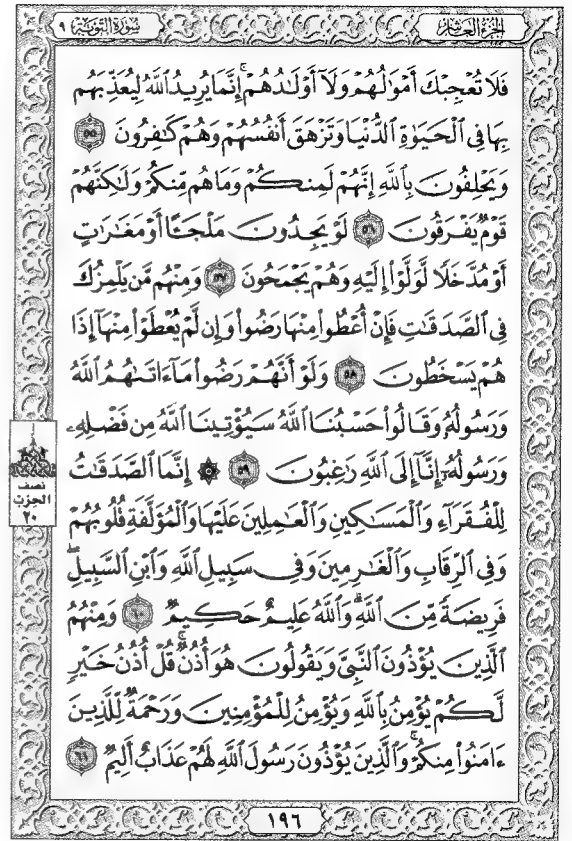 سُورَةُ التَّوْبَةِ ٩
الجُزْءُ العَاشِرُ
فَلَا تُعْجِبْكَ أَمْوَٰلُهُمْ وَلَآ أَوْلَٰدُهُمْ ۚ إِنَّمَا يُرِيدُ ٱللَّهُ لِيُعَذِّبَهُم
بِهَا فِى ٱلْحَيَوٰةِ ٱلدُّنْيَا وَتَزْهَقَ أَنفُسُهُمْ وَهُمْ كَٰفِرُونَ ٥٥
وَيَحْلِفُونَ بِٱللَّهِ إِنَّهُمْ لَمِنكُمْ وَمَا هُم مِّنكُمْ وَلَٰكِنَّهُمْ
قَوْمٌ يَفْرَقُونَ ٥٦ لَوْ يَجِدُونَ مَلْجَـًٔا أَوْ مَغَٰرَٰتٍ
أَوْ مُدَّخَلًا لَّوَلَّوْا۟ إِلَيْهِ وَهُمْ يَجْمَحُونَ ٥٧ وَمِنْهُم مَّن يَلْمِزُكَ
فِى ٱلصَّدَقَٰتِ فَإِنْ أُعْطُوا۟ مِنْهَا رَضُوا۟ وَإِن لَّمْ يُعْطَوْا۟ مِنْهَآ إِذَا
هُمْ يَسْخَطُونَ ٥٨ وَلَوْ أَنَّهُمْ رَضُوا۟ مَآ ءَاتَىٰهُمُ ٱللَّهُ
وَرَسُولُهُۥ وَقَالُوا۟ حَسْبُنَا ٱللَّهُ سَيُؤْتِينَا ٱللَّهُ مِن فَضْلِهِۦ
وَرَسُولُهُۥٓ إِنَّآ إِلَى ٱللَّهِ رَٰغِبُونَ ٥٩ ۞ إِنَّمَا ٱلصَّدَقَٰتُ
لِلْفُقَرَآءِ وَٱلْمَسَٰكِينِ وَٱلْعَٰمِلِينَ عَلَيْهَا وَٱلْمُؤَلَّفَةِ قُلُوبُهُمْ
وَفِى ٱلرِّقَابِ وَٱلْغَٰرِمِينَ وَفِى سَبِيلِ ٱللَّهِ وَٱبْنِ ٱلسَّبِيلِ ۖ
فَرِيضَةً مِّنَ ٱللَّهِ ۗ وَٱللَّهُ عَلِيمٌ حَكِيمٌ ٦٠ وَمِنْهُمُ
ٱلَّذِينَ يُؤْذُونَ ٱلنَّبِىَّ وَيَقُولُونَ هُوَ أُذُنٌ ۚ قُلْ أُذُنُ خَيْرٍ
لَّكُمْ يُؤْمِنُ بِٱللَّهِ وَيُؤْمِنُ لِلْمُؤْمِنِينَ وَرَحْمَةٌ لِّلَّذِينَ
ءَامَنُوا۟ مِنكُمْ ۚ وَٱلَّذِينَ يُؤْذُونَ رَسُولَ ٱللَّهِ لَهُمْ عَذَابٌ أَلِيمٌ ٦١
نصف
الحزب
٢٠
١٩٦